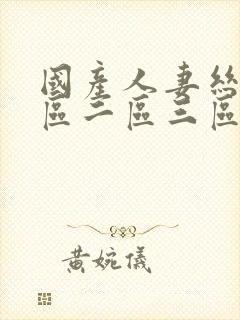 國產人妻絲
區二區三區
黃婉儀